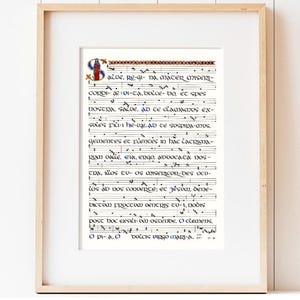 Salve, Regina, mater miseri-
cordiae: vita, dulcedo, et spes
nostra, salve. Ad te clamamus, ex-
sules filii Hevae. Ad te suspiramus,
gementes et flentes in hac lacrima-
rum valle. Eia, ergo, advocata nos-
tra, illos tuos misericordes ocu-
los ad nos converte. Et Jesum, bene-
dictum fructum ventris tui, nobis
post hoc exsilium ostende. O clemens,
O pia, O dulcis Virgo Maria.